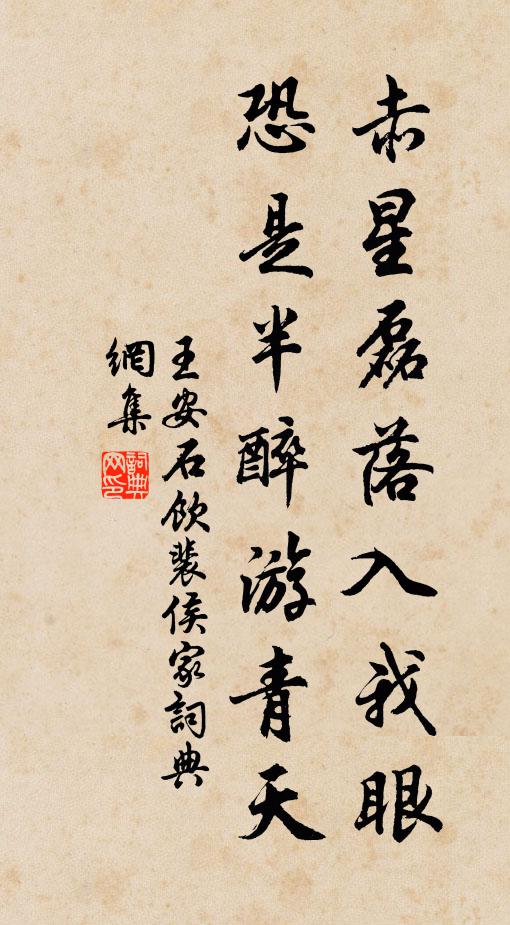 赤星磊落入我眼
恐是半醉游青天
王安石飲裴侯家詞典
網集
詞典網印